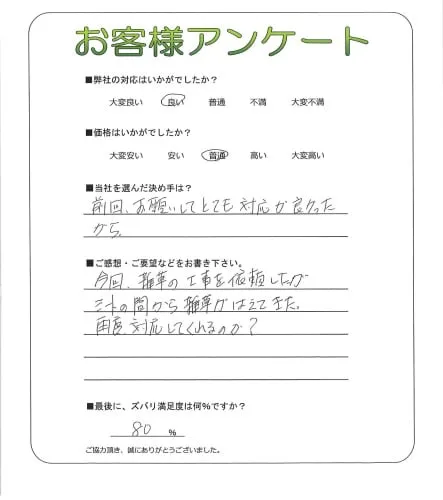 お客様アンケート
■弊社の対応はいかがでしたか？
大変良い 良い 普通 不満 大変不満
■価格はいかがでしたか？
大変安い 安い 普通 高い 大変高い
■当社を選んだ決め手は？
前回、お願いしてとても対応が良かった
から。
■ご感想・ご要望などをお書き下さい。
今回、雑草の工事を依頼したが
シートの間から雑草がはえてきた。
再度対応してくれるのか？
■最後に、ズバリ満足度は何％ですか？
80 ％
ご協力頂き、誠にありがとうございました。